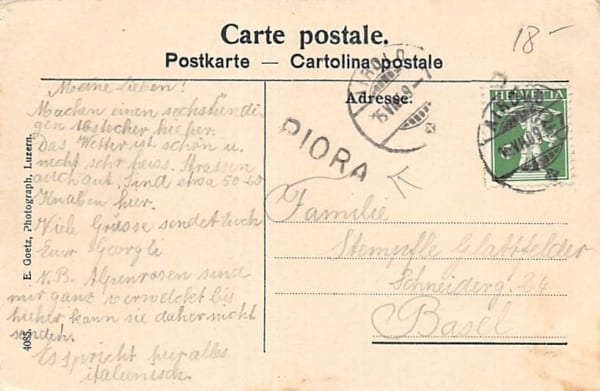 Carte postale.
Postkarte — Cartolina postale
18-
Meine Lieben!
Machen einen sechsstündi-
gen Abstecher hieher.
Das Wetter ist schön u.
nicht sehr heiss. Strassen
auch gut. Sind etwa 50-60
Knaben hier.
Viele Grüsse sendet Euch
Euer Georgli
N.B. Alpenrosen sind
mir ganz verwelkt bis
hieher kann sie daher nicht
senden.
Es spricht hier alles
italienisch.
Adresse:
AIROLO
HELVETIA
AIROLO
PIORA
Familie
Stempfle Glattfelder
Schneiderg. 24
Basel
4085. E. Goetz, Photograph, Luzern.